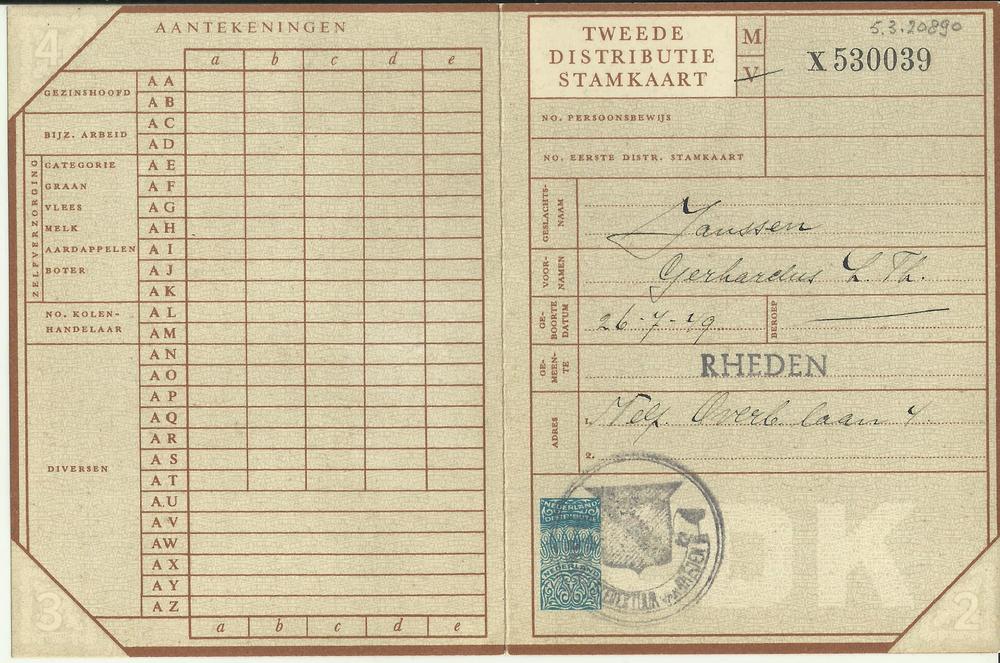 4
AANTEKENINGEN
a b c d e
GEZINSHOOFD
A A
A B
BIJZ. ARBEID
A C
A D
ZELFVERZORGING
CATEGORIE A E
GRAAN A F
VLEES A G
MELK A H
AARDAPPELEN A I
BOTER A J
A K
NO. KOLEN-
HANDELAAR
A L
A M
DIVERSEN
A N
A O
A P
A Q
A R
A S
A T
A U
A V
A W
A X
A Y
A Z
a b c d e
3
TWEEDE
DISTRIBUTIE
STAMKAART
M
V
5.3.20890
X 530039
NO. PERSOONSBEWIJS
NO. EERSTE DISTR. STAMKAART
GESLACHTS-
NAAM
Janssen
VOOR-
NAMEN
Gerhardus L. Th.
GE-
BOORTE
DATUM
26-7-19
BEROEP
GE-
MEEN-
TE
RHEDEN
ADRES
1. Velp. Overb. laan 4.
2.
NEDERLAND
DISTRIBUTIE
NEDERLAND
DK
2